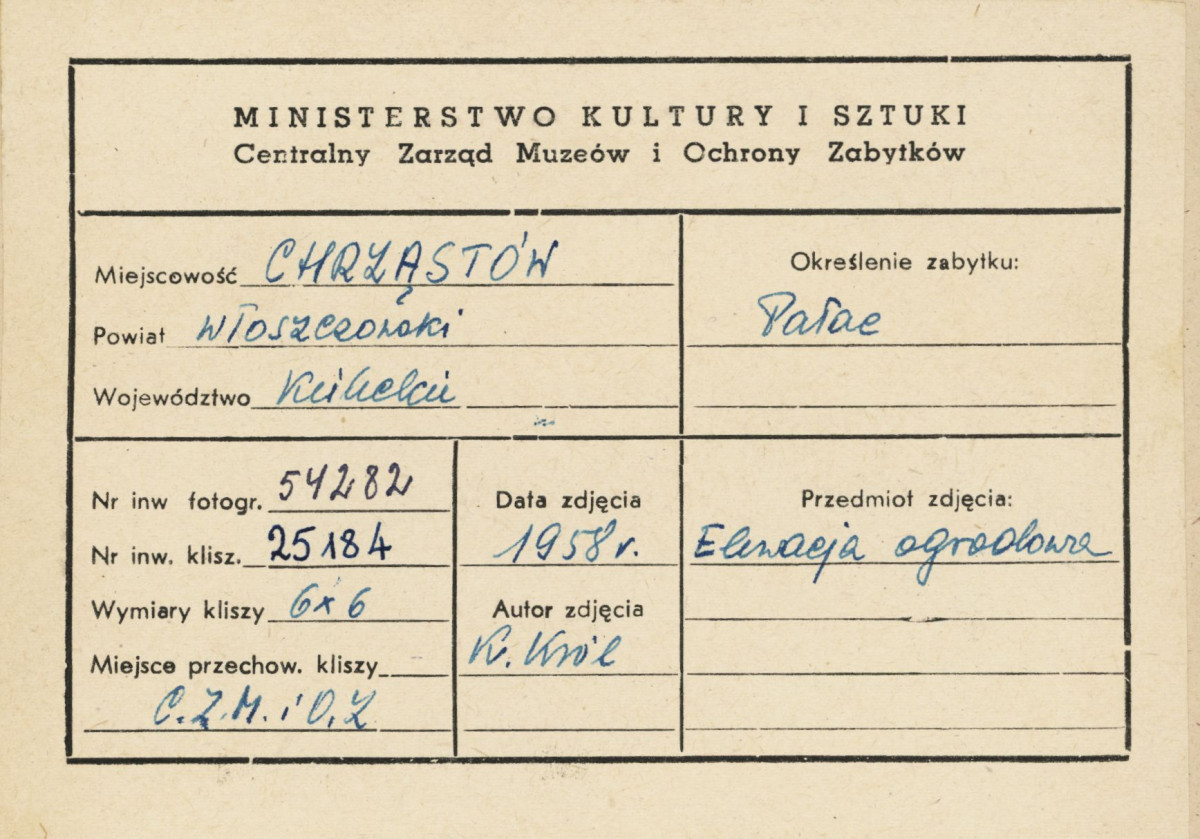 MINISTERSTWO KULTURY I SZTUKI
Centralny Zarząd Muzeów i Ochrony Zabytków
Miejscowość CHRZĄSTÓW
Powiat Włoszczowski
Województwo Kieleckie
Określenie zabytku:
Pałac
Nr inw fotogr. 54282
Nr inw. klisz. 25184
Wymiary kliszy 6x6
Miejsce przechow. kliszy
C.Z.M. i O.Z
Data zdjęcia
1958 r.
Autor zdjęcia
K. Król
Przedmiot zdjęcia:
Elewacja ogrodowa